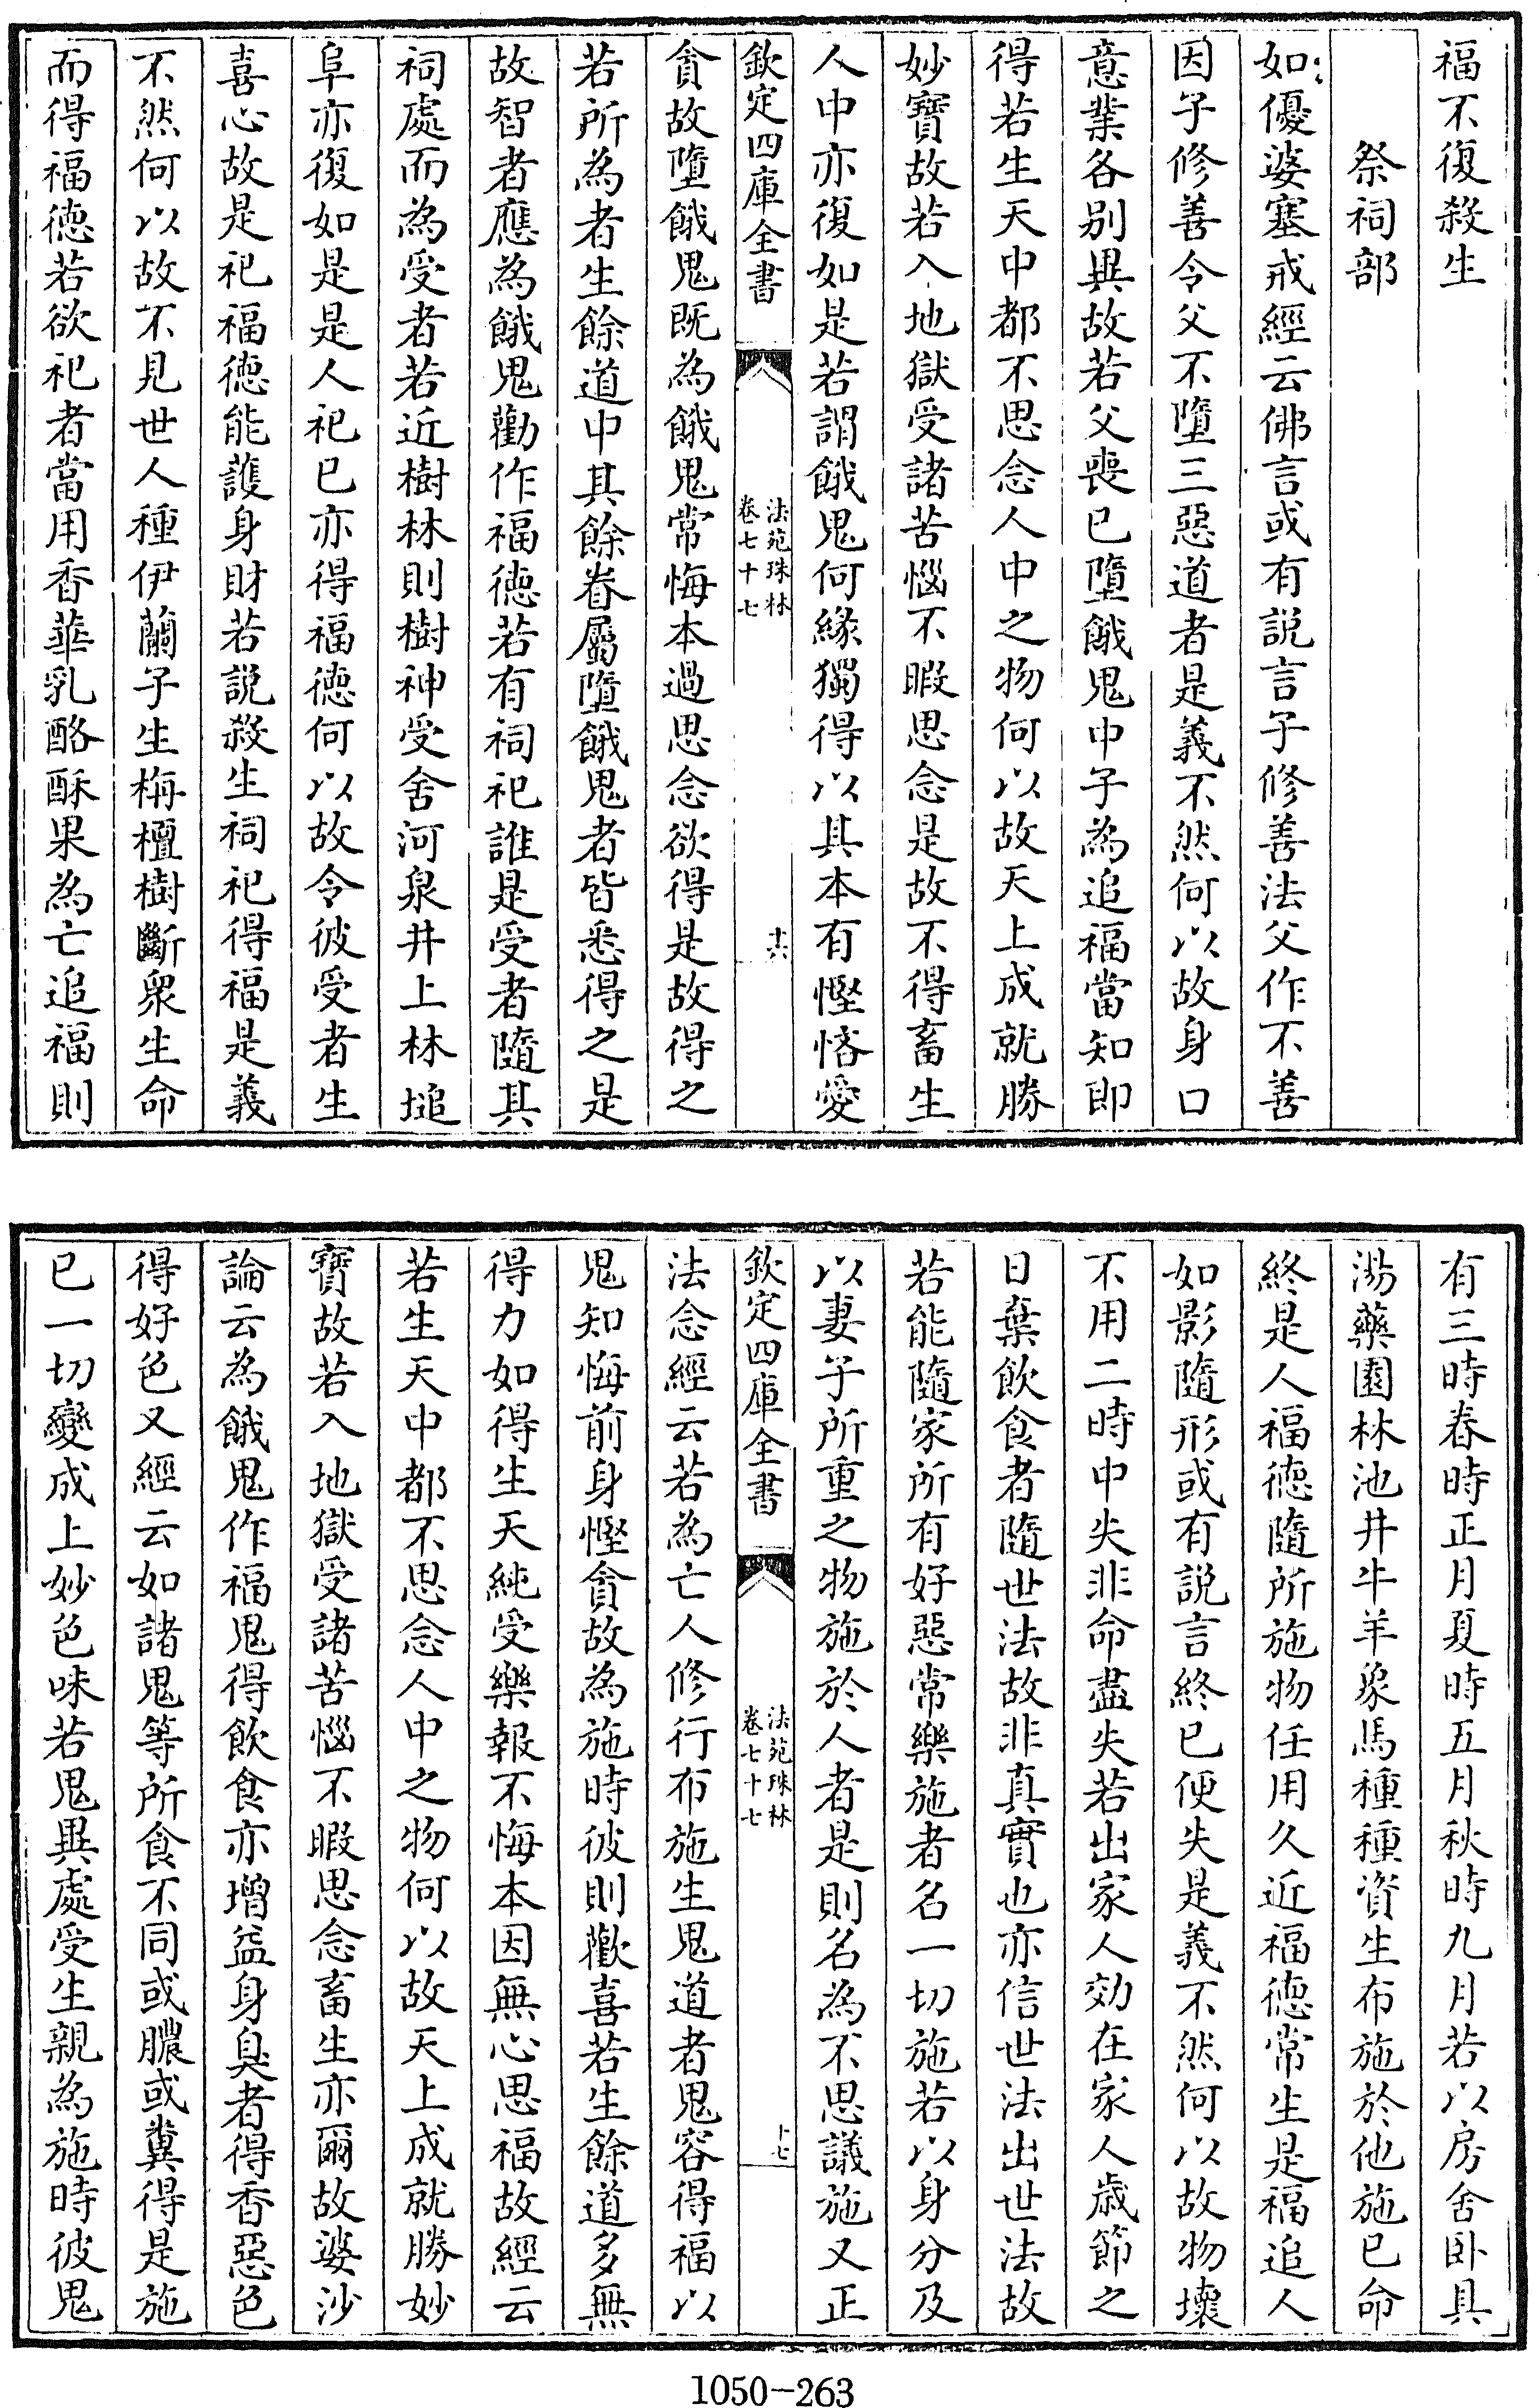 福不復殺生
祭祠部
如優婆塞戒經云佛言或有説言子修善法父作不善
因子修善令父不墮三惡道者是義不然何以故身口
意業各别異故若父喪已墮餓鬼中子為追福當知即
得若生天中都不思念人中之物何以故天上成就勝
妙寶故若入地獄受諸苦惱不暇思念是故不得畜生
人中亦復如是若謂餓鬼何緣獨得以其本有慳悋愛
欽定四庫全書
法苑珠林
卷七十七
十六
貪故墮餓鬼既為餓鬼常悔本過思念欲得是故得之
若所為者生餘道中其餘眷屬墮餓鬼者皆悉得之是
故智者應為餓鬼勸作福徳若有祠祀誰是受者隨其
祠處而為受者若近樹林則樹神受舍河泉井上林塠
阜亦復如是是人祀已亦得福徳何以故令彼受者生
喜心故是祀福徳能護身財若説殺生祠祀得福是義
不然何以故不見世人種伊蘭子生栴檀樹斷衆生命
而得福徳若欲祀者當用香華乳酪酥果為亡追福則
有三時春時正月夏時五月秋時九月若以房舍卧具
湯藥園林池井牛羊象馬種種資生布施於他施已命
終是人福徳隨所施物任用久近福徳常生是福追人
如影隨形或有説言終已便失是義不然何以故物壞
不用二時中失非命盡失若出家人効在家人歳節之
日棄飲食者隨世法故非真實也亦信世法出世法故
若能隨家所有好惡常樂施者名一切施若以身分及
以妻子所重之物施於人者是則名為不思議施又正
欽定四庫全書
法苑珠林
卷七十七
十七
法念經云若為亡人修行布施生鬼道者鬼容得福以
鬼知悔前身慳貪故為施時彼則歡喜若生餘道多無
得力如得生天純受樂報不悔本因無心思福故經云
若生天中都不思念人中之物何以故天上成就勝妙
寶故若入地獄受諸苦惱不暇思念畜生亦爾故婆沙
論云為餓鬼作福鬼得飲食亦增益身臭者得香惡色
得好色又經云如諸鬼等所食不同或膿或糞得是施
已一切變成上妙色味若鬼異處受生親為施時彼鬼
1050-263